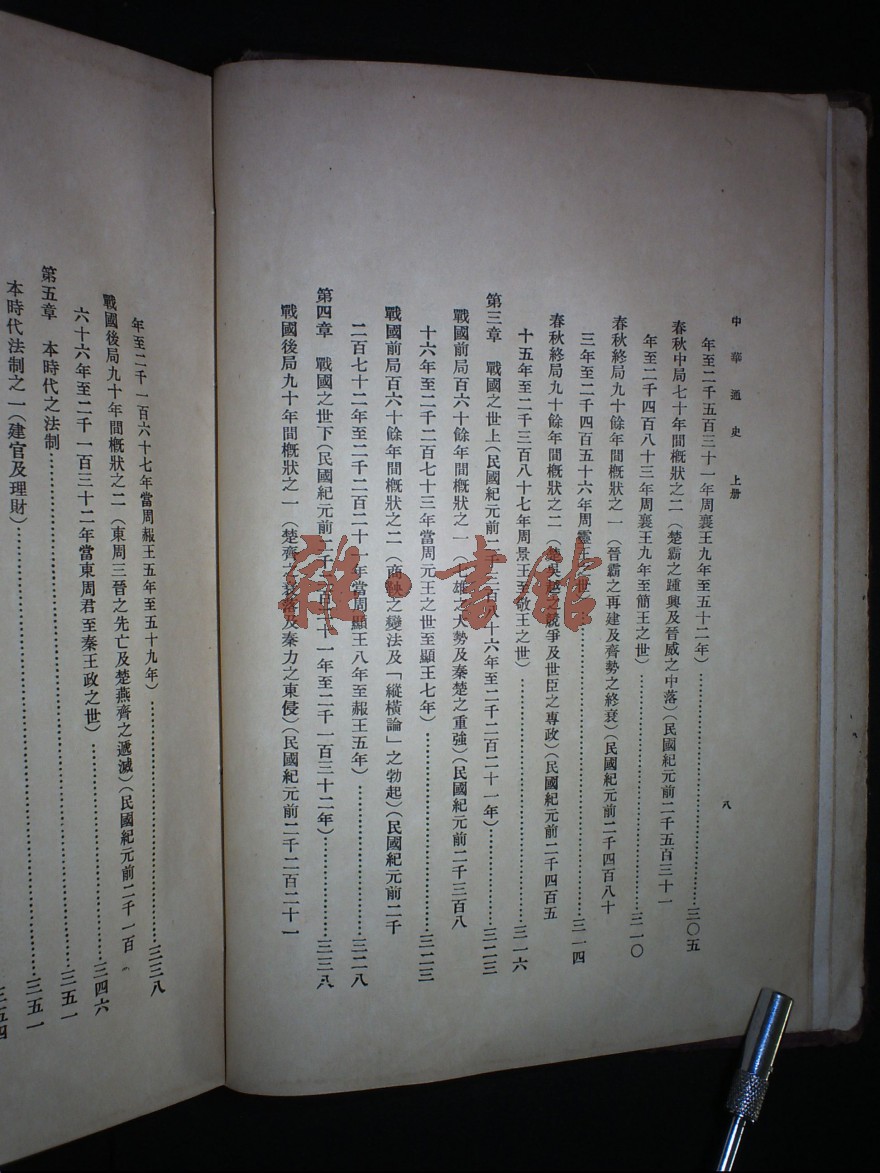 中華通史　上册
八
年至二千五百三十一年周襄王九年至五十二年）…………三〇五
春秋中局七十年間概狀之二（楚霸之踵興及晉威之中落）（民國紀元前二千五百三十一
年至二千四百八十三年周襄王九年至簡王之世）…………三一〇
春秋終局九十餘年間概狀之一（晉霸之再建及齊勢之終衰）（民國紀元前二千四百八十
三年至二千四百五十六年周靈王之世）…………三一四
春秋終局九十餘年間概狀之二（楚吳越之競爭及世臣之專政）（民國紀元前二千四百五
十五年至二千三百八十七年周景王至敬王之世）…………三一六
第三章　戰國之世上（民國紀元前二千三百八十六年至二千二百二十一年）…………三二三
戰國前局百六十餘年間概狀之一（七雄之大勢及秦楚之重強）（民國紀元前二千三百八
十六年至二千二百七十三年當周元王之世至顯王七年）…………三二三
戰國前局百六十餘年間概狀之二（商鞅之變法及「縱橫論」之勃起）（民國紀元前二千
二百七十二年至二千二百二十一年當周顯王八年至赧王五年）…………三二八
第四章　戰國之世下（民國紀元前二千二百二十一年至二千一百三十二年）…………三三八
戰國後局九十年間概狀之一（楚齊之衰落及秦力之東侵）（民國紀元前二千二百二十一
年至二千一百六十七年當周赧王五年至五十九年）…………三三八
戰國後局九十年間概狀之二（東周三晉之先亡及楚燕齊之遞滅）（民國紀元前二千一百
六十六年至二千一百三十二年當東周君至秦王政之世）…………三四六
第五章　本時代之法制…………三五一
本時代法制之一（建官及理財）…………三五一
三五四
雜·書館